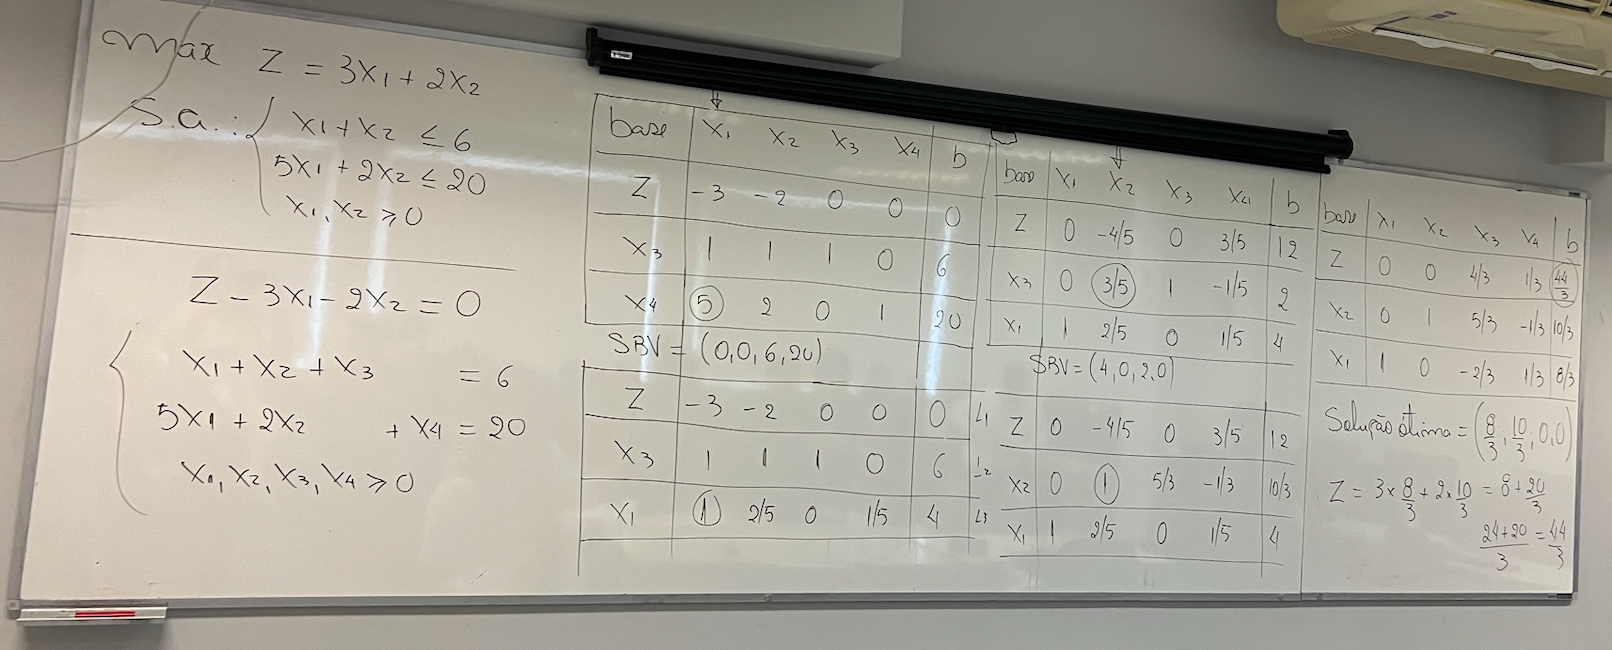 max Z = 3x₁ + 2x₂
S.a.: x₁ + x₂ ≤ 6
5x₁ + 2x₂ ≤ 20
x₁, x₂ ≥ 0
Z - 3x₁ - 2x₂ = 0
x₁ + x₂ + x₃ = 6
5x₁ + 2x₂ + x₄ = 20
x₁, x₂, x₃, x₄ ≥ 0
base x₁ x₂ x₃ x₄ b
Z -3 -2 0 0 0
x₃ 1 1 1 0 6
x₄ 5 2 0 1 20
SBV = (0,0,6,20)
Z -3 -2 0 0 0 L1
x₃ 1 1 1 0 6 L2
x₁ 1 2/5 0 1/5 4 L3
base x₁ x₂ x₃ x₄ b
Z 0 -4/5 0 3/5 12
x₃ 0 3/5 1 -1/5 2
x₁ 1 2/5 0 1/5 4
SBV = (4,0,2,0)
Z 0 -4/5 0 3/5 12
x₂ 0 1 5/3 -1/3 10/3
x₁ 1 2/5 0 1/5 4
base x₁ x₂ x₃ x₄ b
Z 0 0 4/3 1/3 44/3
x₂ 0 1 5/3 -1/3 10/3
x₁ 1 0 -2/3 1/3 8/3
Solução ótima = (8/3, 10/3, 0, 0)
Z = 3 × 8/3 + 2 × 10/3 = 8 + 20/3
(24+20)/3 = 44/3